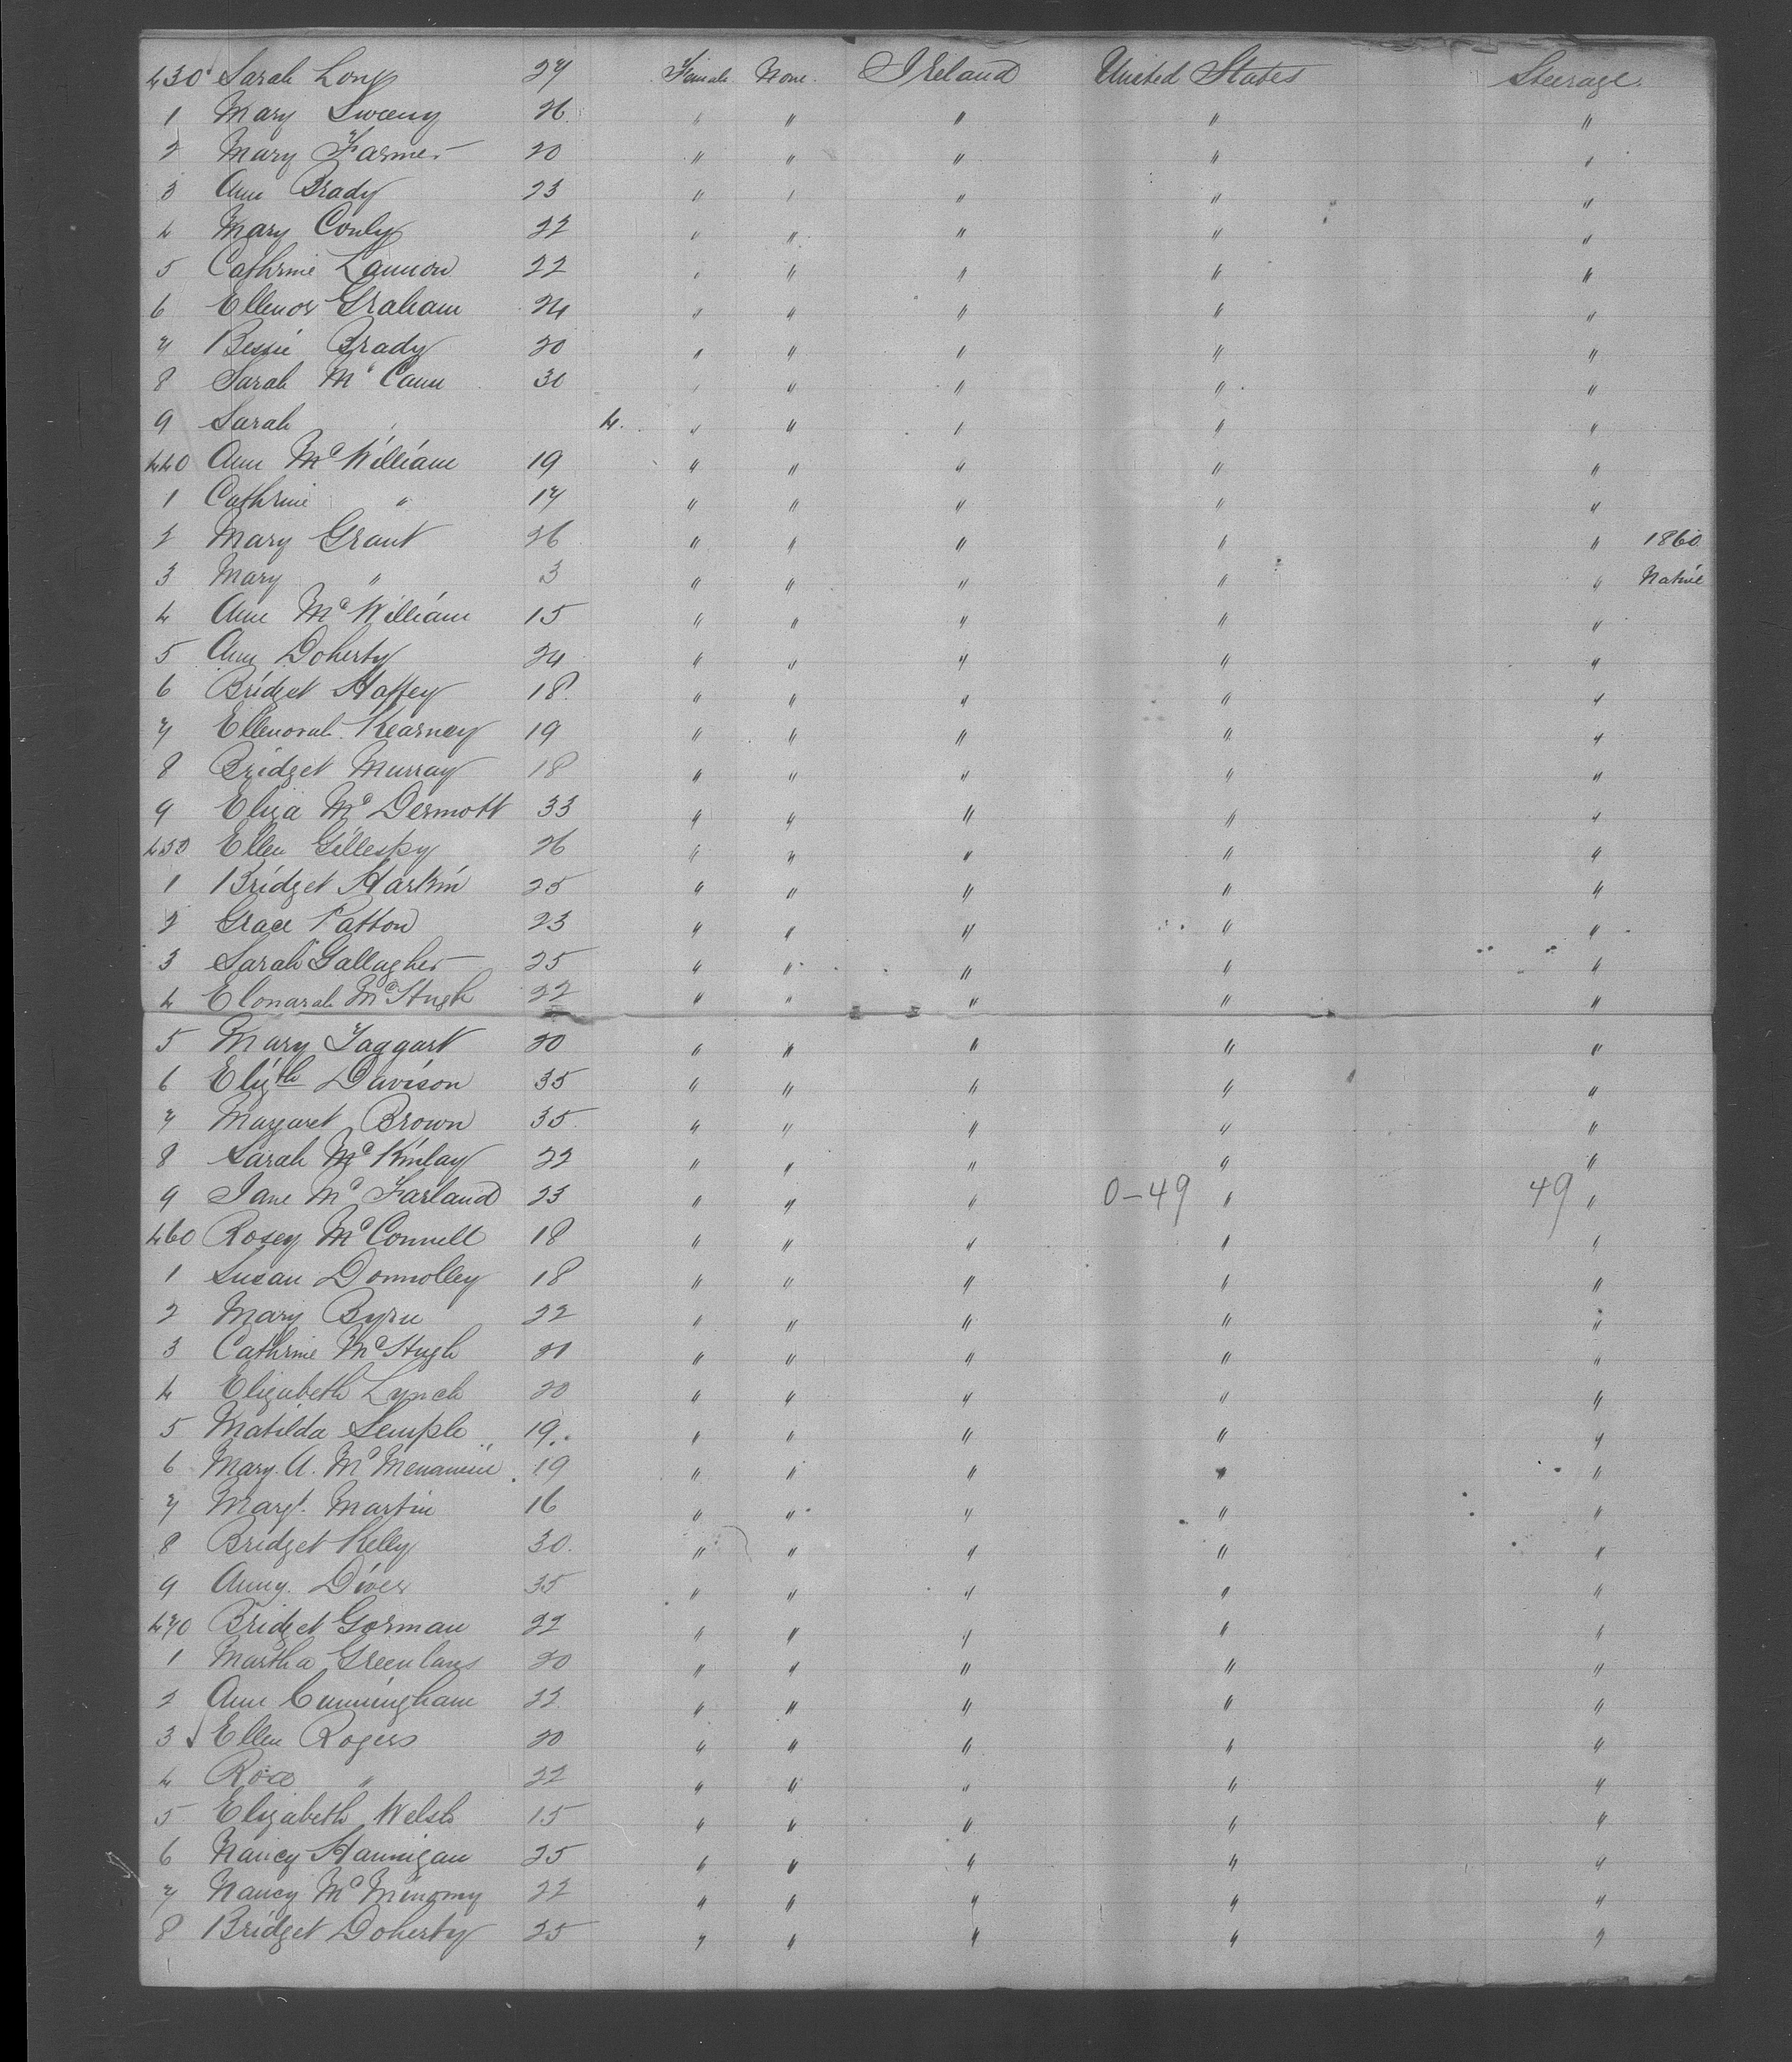 430 Sarah Long 27 Female None. Ireland United States Steerage.
1 Mary Sweeny 26 " " " " "
2 Mary Farmer 20 " " " " "
3 Ann Brady 23 " " " " "
4 Mary Conly 22 " " " " "
5 Cathrine Lannon 22 " " " " "
6 Ellenor Graham 24 " " " " "
7 Bessie Brady 20 " " " " "
8 Sarah McCann 30 " " " " "
9 Sarah " 4. " " " " "
440 Ann McWilliam 19 " " " " "
1 Cathrine " 17 " " " " "
2 Mary Grant 26 " " " " " 1860
3 Mary " 3 " " " " " Native
4 Ann McWilliam 15 " " " " "
5 Ann Doherty 24 " " " " "
6 Bridget Haffey 18 " " " " "
7 Ellenorah Kearney 19 " " " " "
8 Bridget Murray 18 " " " " "
9 Eliza McDermott 33 " " " " "
450 Ellen Gillespy 26 " " " " "
1 Bridget Harkin 25 " " " " "
2 Grace Patton 23 " " " " "
3 Sarah Gallagher 25 " " " " "
4 Elonarah McHugh 22 " " " " "
5 Mary Taggart 20 " " " " "
6 Elizth Davison 35 " " " " "
7 Margaret Brown 35 " " " " "
8 Sarah McKinlay 22 " " " " "
9 Jane McFarland 23 " " " 0-49 " 49 "
460 Rosey McConnell 18 " " " " "
1 Susan Donnolley 18 " " " " "
2 Mary Byrne 22 " " " " "
3 Cathrine McHugh 21 " " " " "
4 Elizabeth Lynch 20 " " " " "
5 Matilda Semple 19 " " " " "
6 Mary A. McMenamin 19 " " " " "
7 Margt. Martin 16 " " " " "
8 Bridget Kelly 30 " " " " "
9 Anny Diver 35 " " " " "
470 Bridget Gorman 22 " " " " "
1 Martha Greenlans 20 " " " " "
2 Ann Cunningham 22 " " " " "
3 Ellen Rogers 20 " " " " "
4 Rose " 22 " " " " "
5 Elizabeth Welsh 15 " " " " "
6 Nancy Hannigan 25 " " " " "
7 Nancy McMenomy 22 " " " " "
8 Bridget Doherty 25 " " " " "